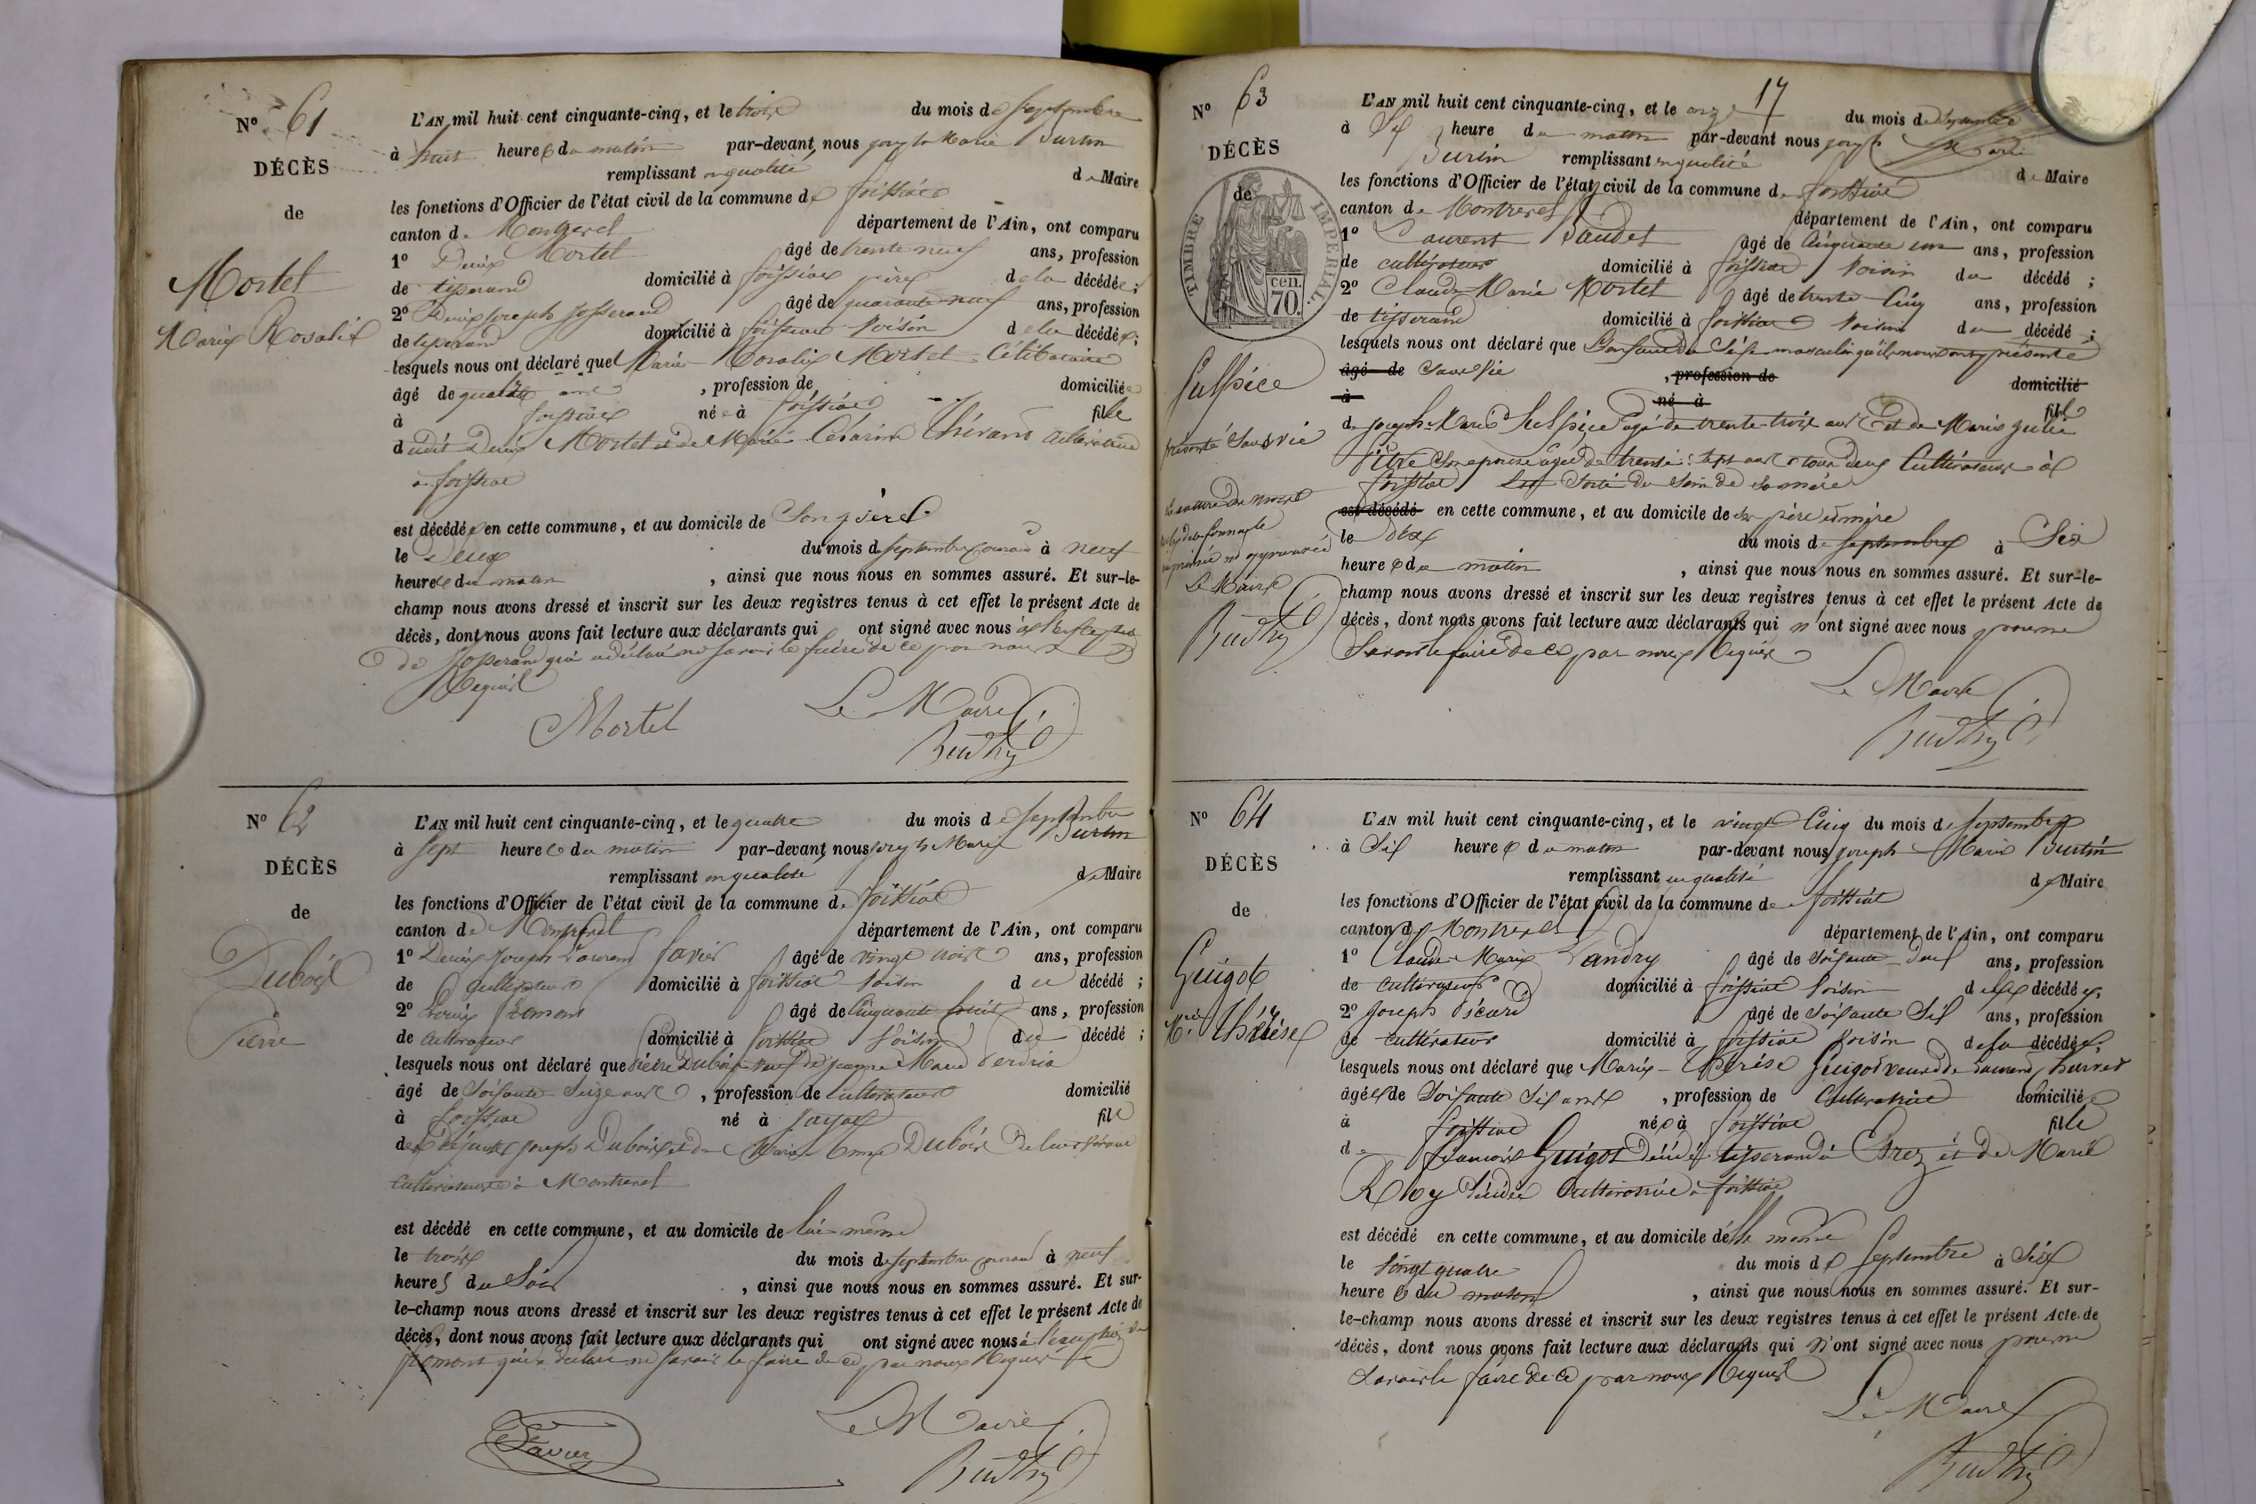 N° 61
DÉCÈS
de
Mortel
Marie Rosalie
L'AN mil huit cent cinquante-cinq, et le trois du mois de Septembre
à huit heures du matin par-devant nous joseph Marie Burtin
remplissant en qualité de Maire
les fonctions d'Officier de l'état civil de la commune de foissiat
canton de Montrevel département de l'Ain, ont comparu
1° Denis Mortel âgé de trente neuf ans, profession
de tisserand domicilié à foissiat père de la décédée;
2° Denis joseph josserand âgé de quarante neuf ans, profession
de tisserand domicilié à foissiat Voisin de la décédée;
lesquels nous ont déclaré que Marie Rosalie Mortel Célibataire
âgé de quatre ans, profession de domiciliée
à foissiat née à foissiat fille
dudit Denis Mortel et de Marie Césarine cultivatrice
à foissiat
est décédée en cette commune, et au domicile de Son père
le Deux du mois de Septembre courant à neuf
heures du matin, ainsi que nous nous en sommes assuré. Et sur-le-
champ nous avons dressé et inscrit sur les deux registres tenus à cet effet le présent Acte de
décès, dont nous avons fait lecture aux déclarants qui ont signé avec nous à l'exception
de josserand qui a déclaré ne savoir le faire de ce par nous
Requis
Mortel
Le Maire
Burtin
N° 62
DÉCÈS
de
Dubois
Pierre
L'AN mil huit cent cinquante-cinq, et le quatre du mois de Septembre
à sept heures du matin par-devant nous joseph Marie Burtin
remplissant en qualité de Maire
les fonctions d'Officier de l'état civil de la commune de foissiat
canton de Montrevel département de l'Ain, ont comparu
1° Denis joseph Laurent favier âgé de vingt trois ans, profession
de Cultivateur domicilié à foissiat voisin du décédé;
2° âgé de Cinquante huit ans, profession
de cultivateur domicilié à foissiat Voisin du décédé;
lesquels nous ont déclaré que pierre Dubois veuf de jeanne Marie
âgé de Soixante Seize ans, profession de Cultivateur domicilié
à foissiat né à fils
de défunts joseph Dubois et de Marie Dubois De leur vivant
Cultivateurs à Montrevel
est décédé en cette commune, et au domicile de lui même
le trois du mois de septembre courant à neuf
heures du Soir, ainsi que nous nous en sommes assuré. Et sur-
le-champ nous avons dressé et inscrit sur les deux registres tenus à cet effet le présent Acte de
décès, dont nous avons fait lecture aux déclarants qui ont signé avec nous à l'exception de
qui a déclaré ne savoir le faire de ce par nous Requis
Favier
Le Maire
Burtin
17
N° 63
DÉCÈS
de
TIMBRE IMPÉRIAL
70 cen.
Sulpice
présenté Sans vie
Le Maire
Burtin
L'AN mil huit cent cinquante-cinq, et le onze du mois de Septembre
à Six heure du matin par-devant nous joseph Marie
Burtin remplissant en qualité de Maire
les fonctions d'Officier de l'état civil de la commune de foissiat
canton de Montrevel département de l'Ain, ont comparu
1° Laurent Baudet âgé de Cinquante un ans, profession
de cultivateur domicilié à foissiat Voisin du décédé;
2° Claude Marie Mortel âgé de trente Cinq ans, profession
de tisserand domicilié à foissiat Voisin du décédé;
lesquels nous ont déclaré que l'enfant du Sexe masculin qu'ils nous ont présenté
âgé de Sans Vie, profession de domicilié
à né à fils
de joseph Marie Sulpice agé de trente trois ans Et de Marie julie
Son épouse agée de trente Sept ans tous deux Cultivateurs à
foissiat Est Sorti du Sein de Sa mère
est décédé en cette commune, et au domicile de Ses père et mère
le dix du mois de Septembre à Six
heures du matin, ainsi que nous nous en sommes assuré. Et sur-le-
champ nous avons dressé et inscrit sur les deux registres tenus à cet effet le présent Acte de
décès, dont nous avons fait lecture aux déclarants qui n'ont signé avec nous pour ne
Savoir le faire de ce par nous Requis
Le Maire
Burtin
N° 64
DÉCÈS
de
Guigot
Mie Thérèse
L'AN mil huit cent cinquante-cinq, et le vingt Cinq du mois de Septembre
à Six heures du matin par-devant nous joseph Marie Burtin
remplissant en qualité de Maire
les fonctions d'Officier de l'état civil de la commune de foissiat
canton de Montrevel département de l'Ain, ont comparu
1° Claude Marie Landry âgé de Soixante Deux ans, profession
de Cultivateur domicilié à foissiat Voisin de la décédée;
2° joseph Picard âgé de Soixante Six ans, profession
de cultivateur domicilié à foissiat voisin de la décédée;
lesquels nous ont déclaré que Marie Thérèse Guigot veuve de
âgée de Soixante Six ans, profession de Cultivatrice domiciliée
à foissiat née à foissiat fille
de françois Guigot Décédé tisserand à et De Marie
Décédée Cultivatrice à foissiat
est décédé en cette commune, et au domicile d'elle même
le Vingt quatre du mois de Septembre à Six
heures du matin, ainsi que nous nous en sommes assuré. Et sur-
le-champ nous avons dressé et inscrit sur les deux registres tenus à cet effet le présent Acte de
décès, dont nous avons fait lecture aux déclarants qui n'ont signé avec nous pour ne
Savoir le faire de ce par nous Requis
Le Maire
Burtin